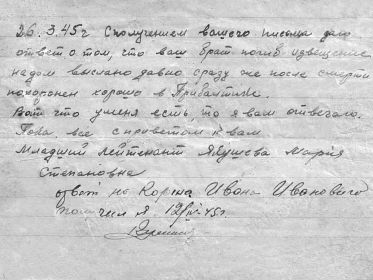 26.3.45г Сполучением вашего письма даю
ответ о том, что ваш брат погиб извещение
надом выслано давно сразу же после смерти
похоронен хорошо в Прибалтике.
Вот что уменя есть, то я вам отвечаю.
Пока все с приветом к вам
Младший лейтенант Якушева Мария
Степановна
ответ на Корина Ивана Ивановича
получил я 12/IV-45г.